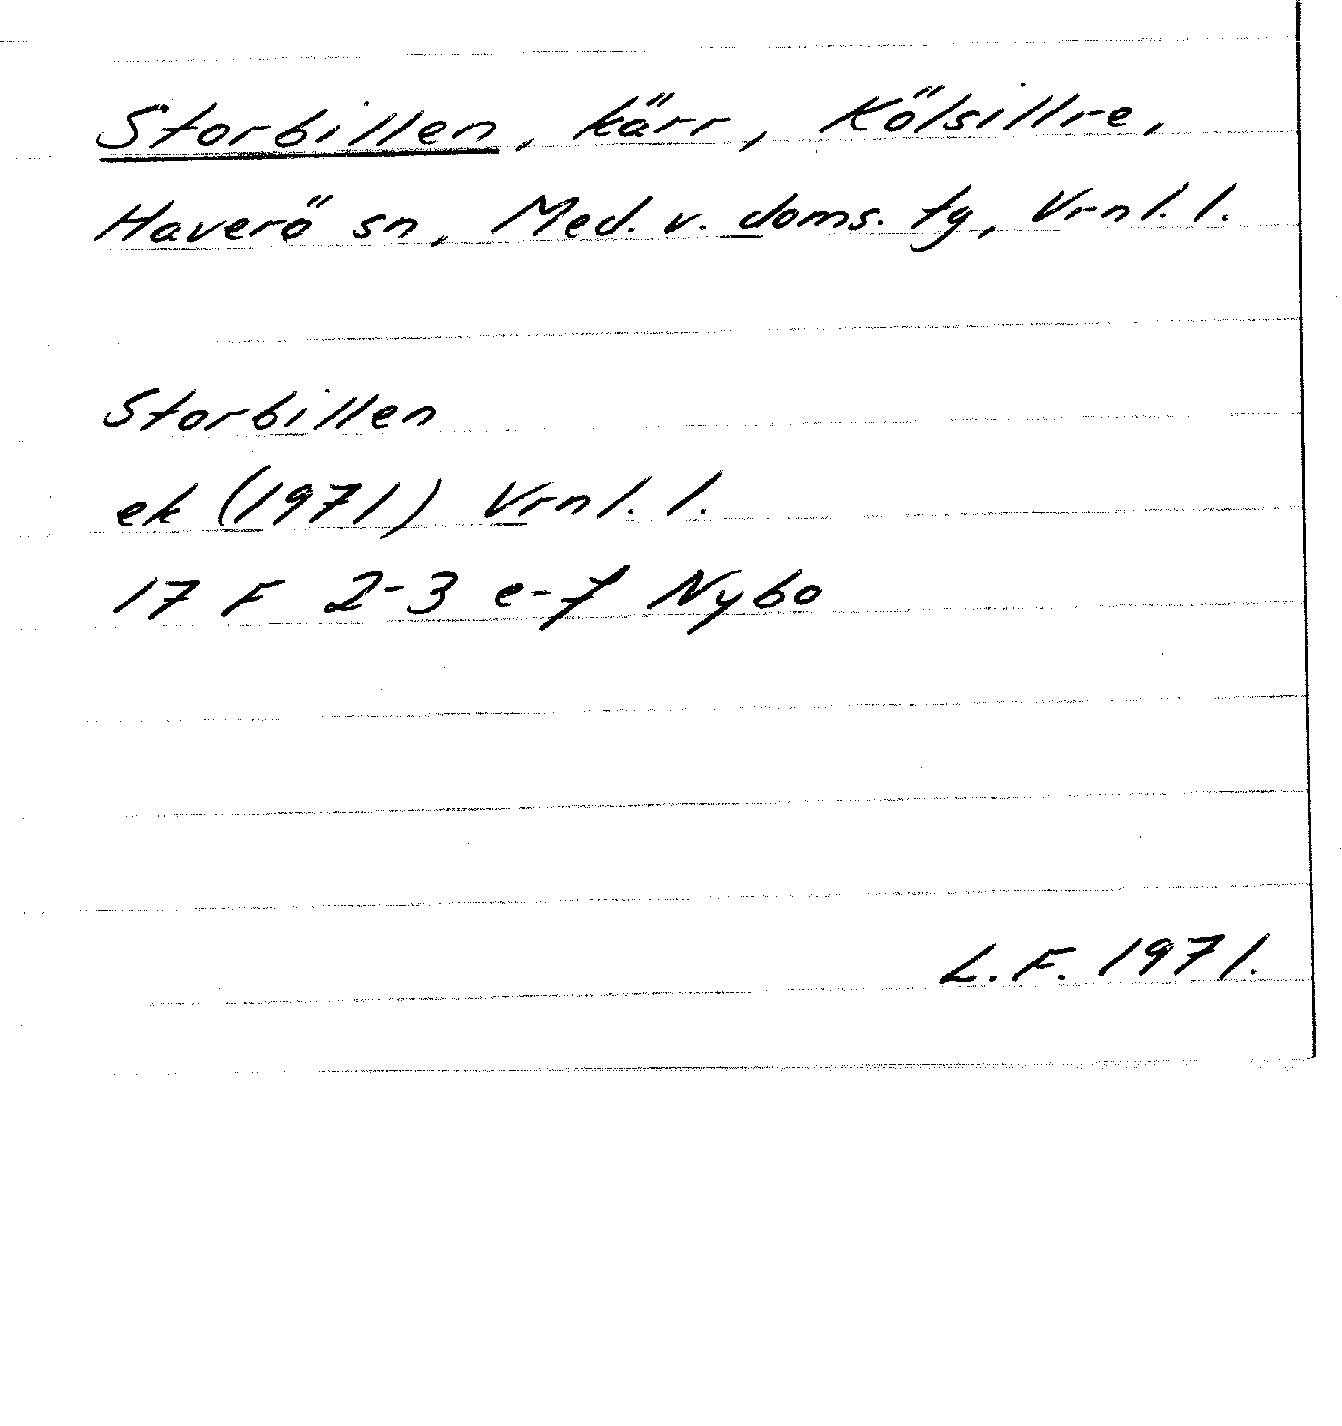 Storbillen, kärr, Kölsillre,
Haverö sn, Med. v. doms. tg, Vrnl. l.
Storbillen
ek (1971) Vrnl. l.
17 F 2-3 e-f Nybo
L.F. 1971.